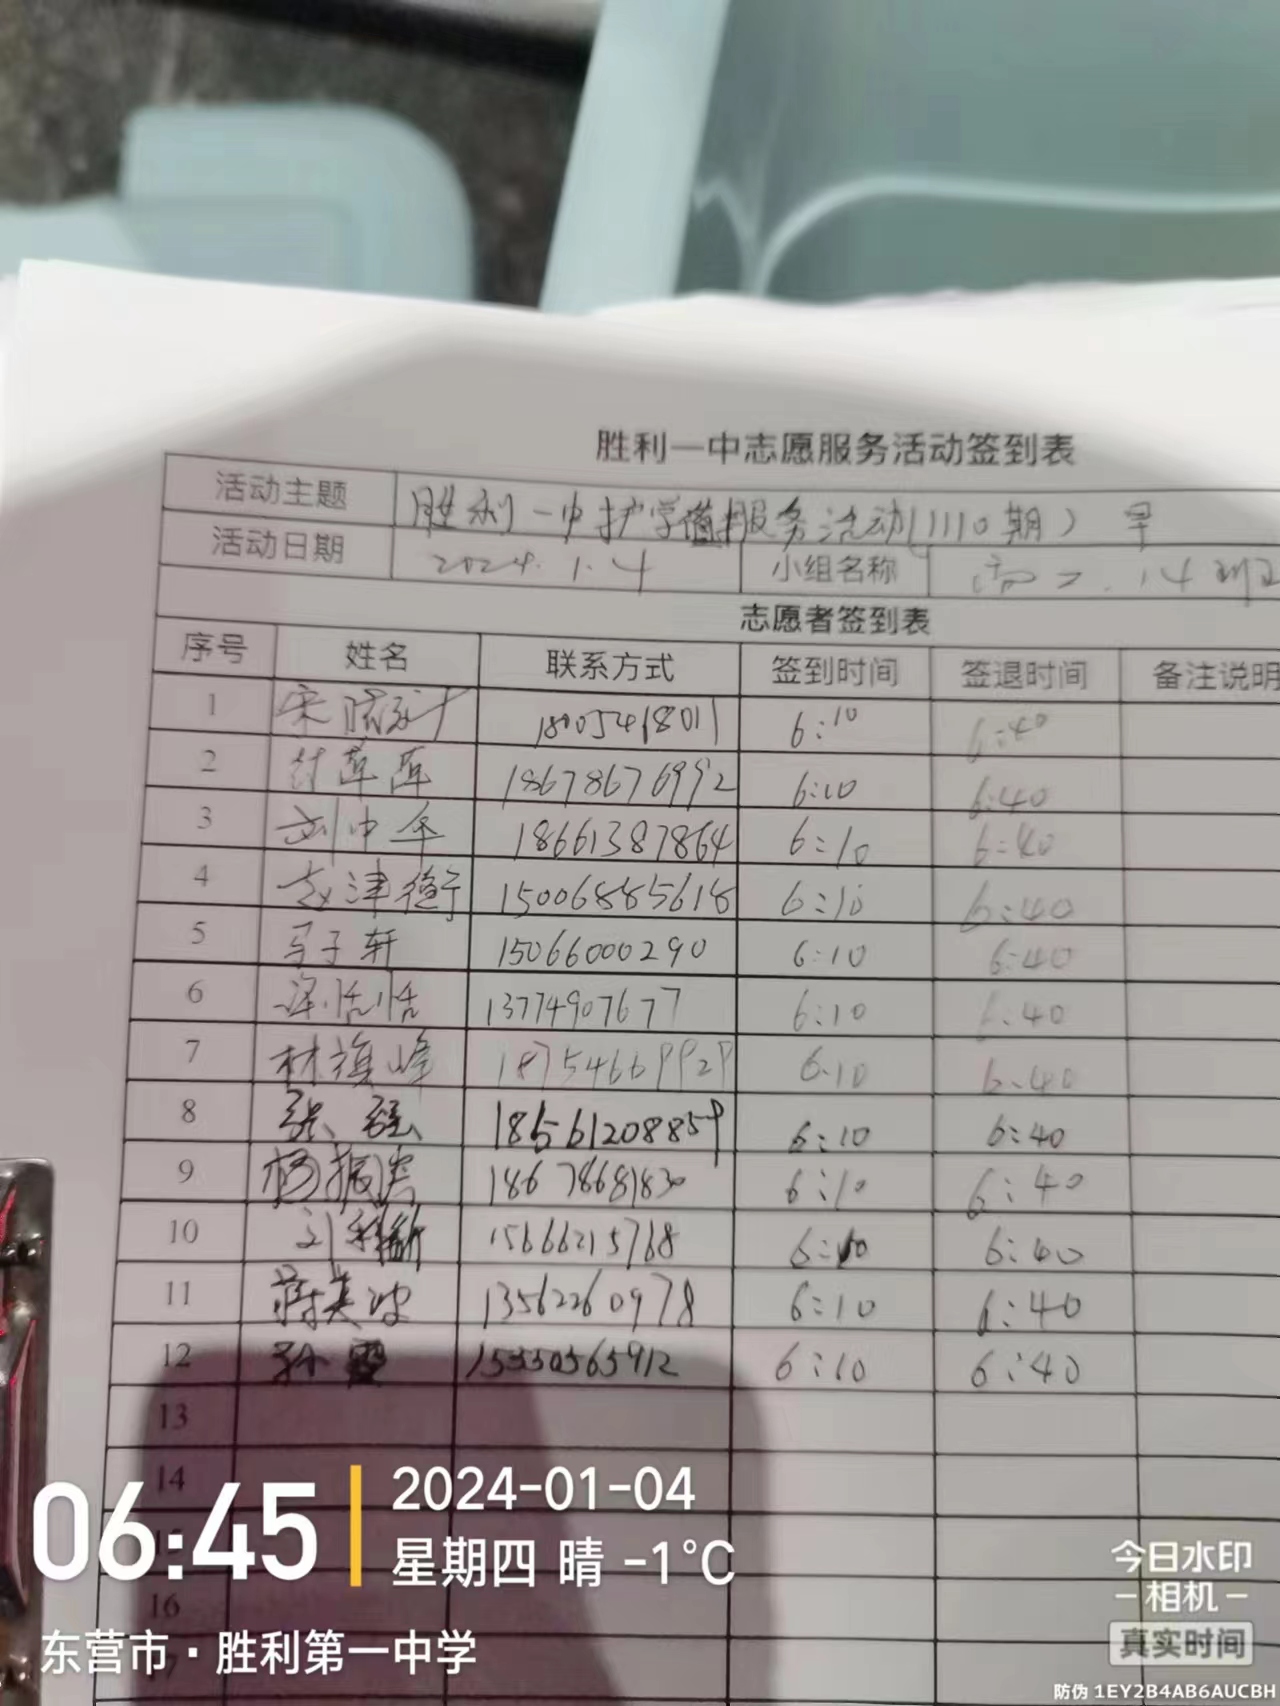 胜利一中志愿服务活动签到表
活动主题 胜利一中护学值班服务活动(1110期) 早
活动日期 2024.1.4 小组名称 高二.14班
志愿者签到表
序号 姓名 联系方式 签到时间 签退时间 备注说明
1 18005418011 6:10 6:40
2 付莲莲 18678676992 6:10 6:40
3 刘中华 18661387864 6:10 6:40
4 赵津衡 15006885618 6:10 6:40
5 马子轩 15066000290 6:10 6:40
6 13774907677 6:10 6:40
7 林旗峰 18754669929 6:10 6:40
8 张 18561208859 6:10 6:40
9 杨振 18678681830 6:10 6:40
10 刘 15666215768 6:10 6:40
11 蒋英波 13562260978 6:10 6:40
12 孙霞 15550565912 6:10 6:40
13
14
15
16
17
06:45
2024-01-04
星期四 晴 -1°C
东营市·胜利第一中学
今日水印
-相机-
真实时间
防伪 1EY2B4AB6AUCBH